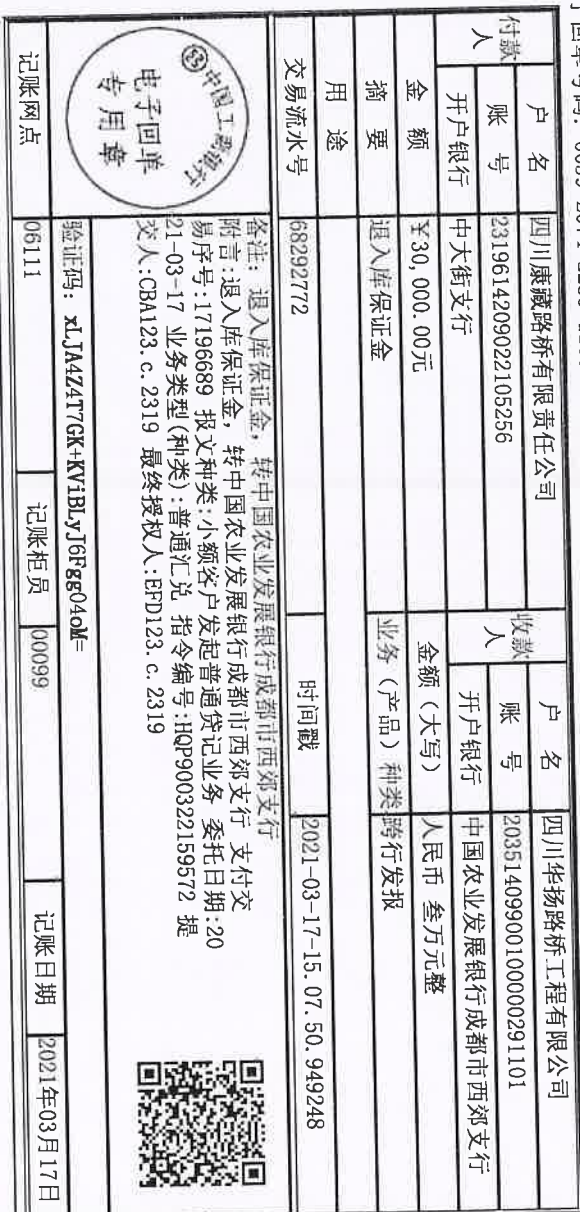 付款人 户名 四川康藏路桥有限责任公司 收款人 户名 四川华扬路桥工程有限公司
账号 2319614209022105256 账号 20351409900100000291101
开户银行 中大街支行 开户银行 中国农业发展银行成都市西郊支行
金额 ¥30,000.00元 金额（大写） 人民币 叁万元整
摘要 退入库保证金 业务（产品）种类 跨行发报
用途
交易流水号 68292772 时间戳 2021-03-17-15.07.50.949248
中国工商银行
电子回单
专用章
备注：退入库保证金，转中国农业发展银行成都市西郊支行
附言:退入库保证金，转中国农业发展银行成都市西郊支行 支付交
易序号:17196689 报文种类:小额客户发起普通贷记业务 委托日期:20
21-03-17 业务类型(种类):普通汇兑 指令编号:HQP900322159572 提
交人:CBA123.c.2319 最终授权人:EFD123.c.2319
验证码：xLJA4Z4T7GK+KViBLyJ6Fgg04oM=
记账网点 06111 记账柜员 00099 记账日期 2021年03月17日